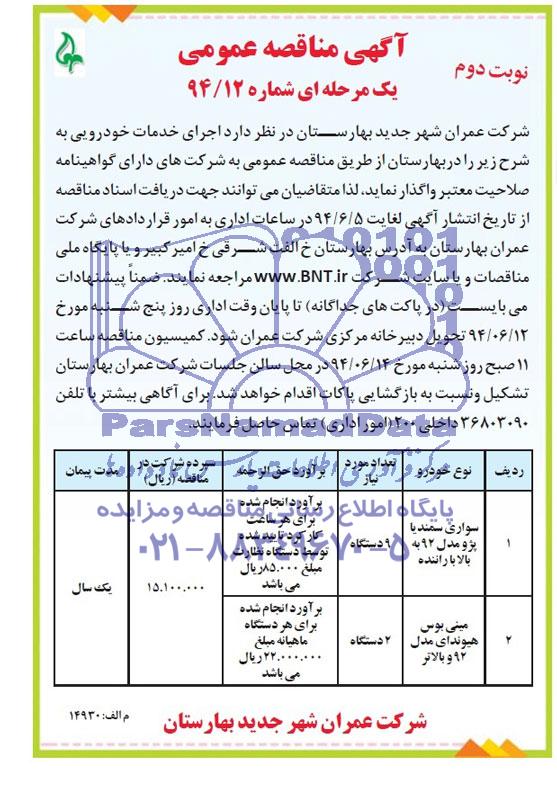 آگهی مناقصه عمومی
نوبت دوم
یک مرحله ای شماره ۹۴/۱۲
شرکت عمران شهر جدید بهارستان در نظر دارد اجرای خدمات خودرویی به
شرح زیر را در بهارستان از طریق مناقصه عمومی به شرکت های دارای گواهینامه
صلاحیت معتبر واگذار نماید. لذا متقاضیان می توانند جهت دریافت اسناد مناقصه
از تاریخ انتشار آگهی لغایت ۹۴/۶/۵ در ساعات اداری به امور قراردادهای شرکت
عمران بهارستان به آدرس بهارستان خ الفت شرقی خ امیر کبیر و یا پایگاه ملی
مناقصات و یا سایت شرکت www.BNT.ir مراجعه نمایند. ضمناً پیشنهادات
می بایست (در پاکت های جداگانه) تا پایان وقت اداری روز پنج شنبه مورخ
۹۴/۰۶/۱۲ تحویل دبیرخانه مرکزی شرکت عمران شود. کمیسیون مناقصه ساعت
۱۱ صبح روز شنبه مورخ ۹۴/۰۶/۱۴ در محل سالن جلسات شرکت عمران بهارستان
تشکیل ونسبت به بازگشایی پاکات اقدام خواهد شد. برای آگاهی بیشتر با تلفن
۳۶۸۰۳۰۹۰ داخلی ۲۰۰ (امور اداری) تماس حاصل فرمایند.
ParsNamadData
ردیف نوع خودرو تعداد مورد نیاز برآورد حق الزحمه سپرده شرکت در مناقصه (ریال) مدت پیمان
پایگاه اطلاع رسانی مناقصه و مزایده
۰۲۱-۸۸۳۴۹۶۷۰-۵
۱ سواری سمند یا پژو مدل ۹۲ به بالا با راننده ۹ دستگاه برآورد انجام شده برای هر ساعت کارکرد تایید شده توسط دستگاه نظارت مبلغ ۸۵.۰۰۰ ریال می باشد ۱۵.۱۰۰.۰۰۰ یک سال
۲ مینی بوس هیوندای مدل ۹۲ و بالاتر ۲ دستگاه برآورد انجام شده برای هر دستگاه ماهیانه مبلغ ۲۲.۰۰۰.۰۰۰ ریال می باشد
شرکت عمران شهر جدید بهارستان
م الف: ۱۴۹۳۰